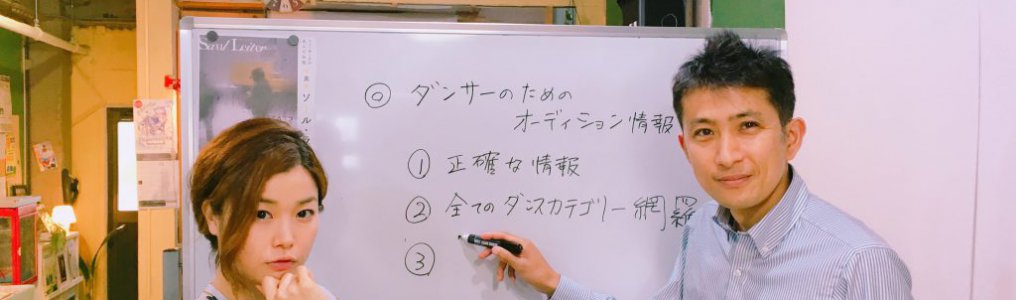 Saul Leiter
◎ ダンサーのための
オーディション情報
① 正確な情報
② 全てのダンスカテゴリー網羅
③